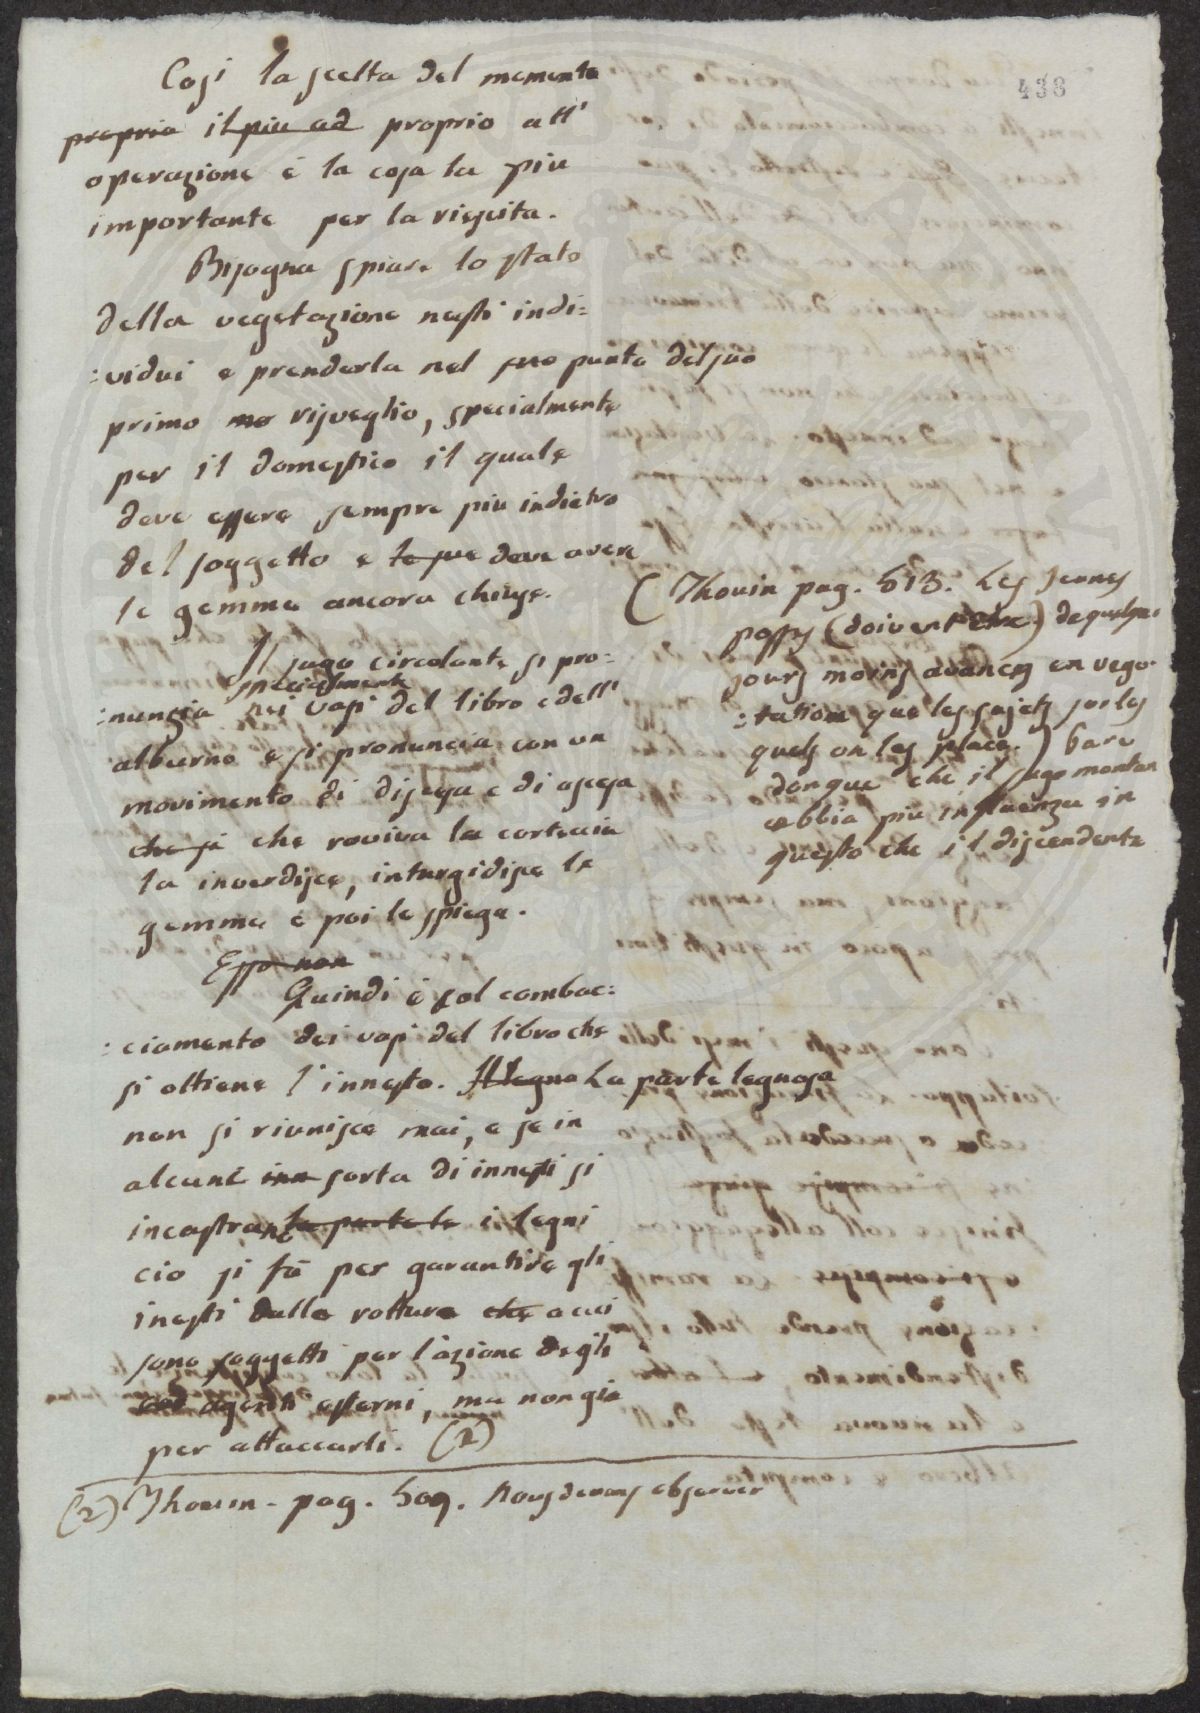 438
Cosi la scelta del momento
propria il piu ad proprio all'
operazione è la cosa la piu
importante per la riescita.
Bisogna spiare lo stato
della vegetazione nesti indi=
:vidui e prenderla nel suo punto del suo
primo mo risveglio, specialmente
per il domestico il quale
deve essere sempre piu indietro
del soggetto e le sue deve avere
le gemme ancora chiuse.
Il sugo circolante si pro:
specialmente
:nunzia nei vasi del libro e dell'
alburno e si pronuncia con un
movimento di discesa e di ascesa
che fa che roviva la corteccia
la inverdisce, inturgidisce le
gemme e poi le spiega.
Esso non
Quindi è sol combac:
:ciamento dei vasi del libro che
si ottiene l'innesto. Il legno La parte legnosa
non si riunisce mai, e se in
alcune inn sorta di innesti si
incastrano la parte le i legni
cio si fà per garantire gli
inesti dalle rotture che a cui
sono soggetti per l'azione degli
agenti esterni, ma non gia
per attaccarli. (2)
(Thouin pag. 513. Les jeunes
(doivent être) de quelque
jours moins avancés en vege-
:tation que les sujets sur les
quels on les place.) Pare
donque che il sugo montan
abbia piu influenza in
questo che il discendente
(2) Thouin - pag. 509. Nous devons observer